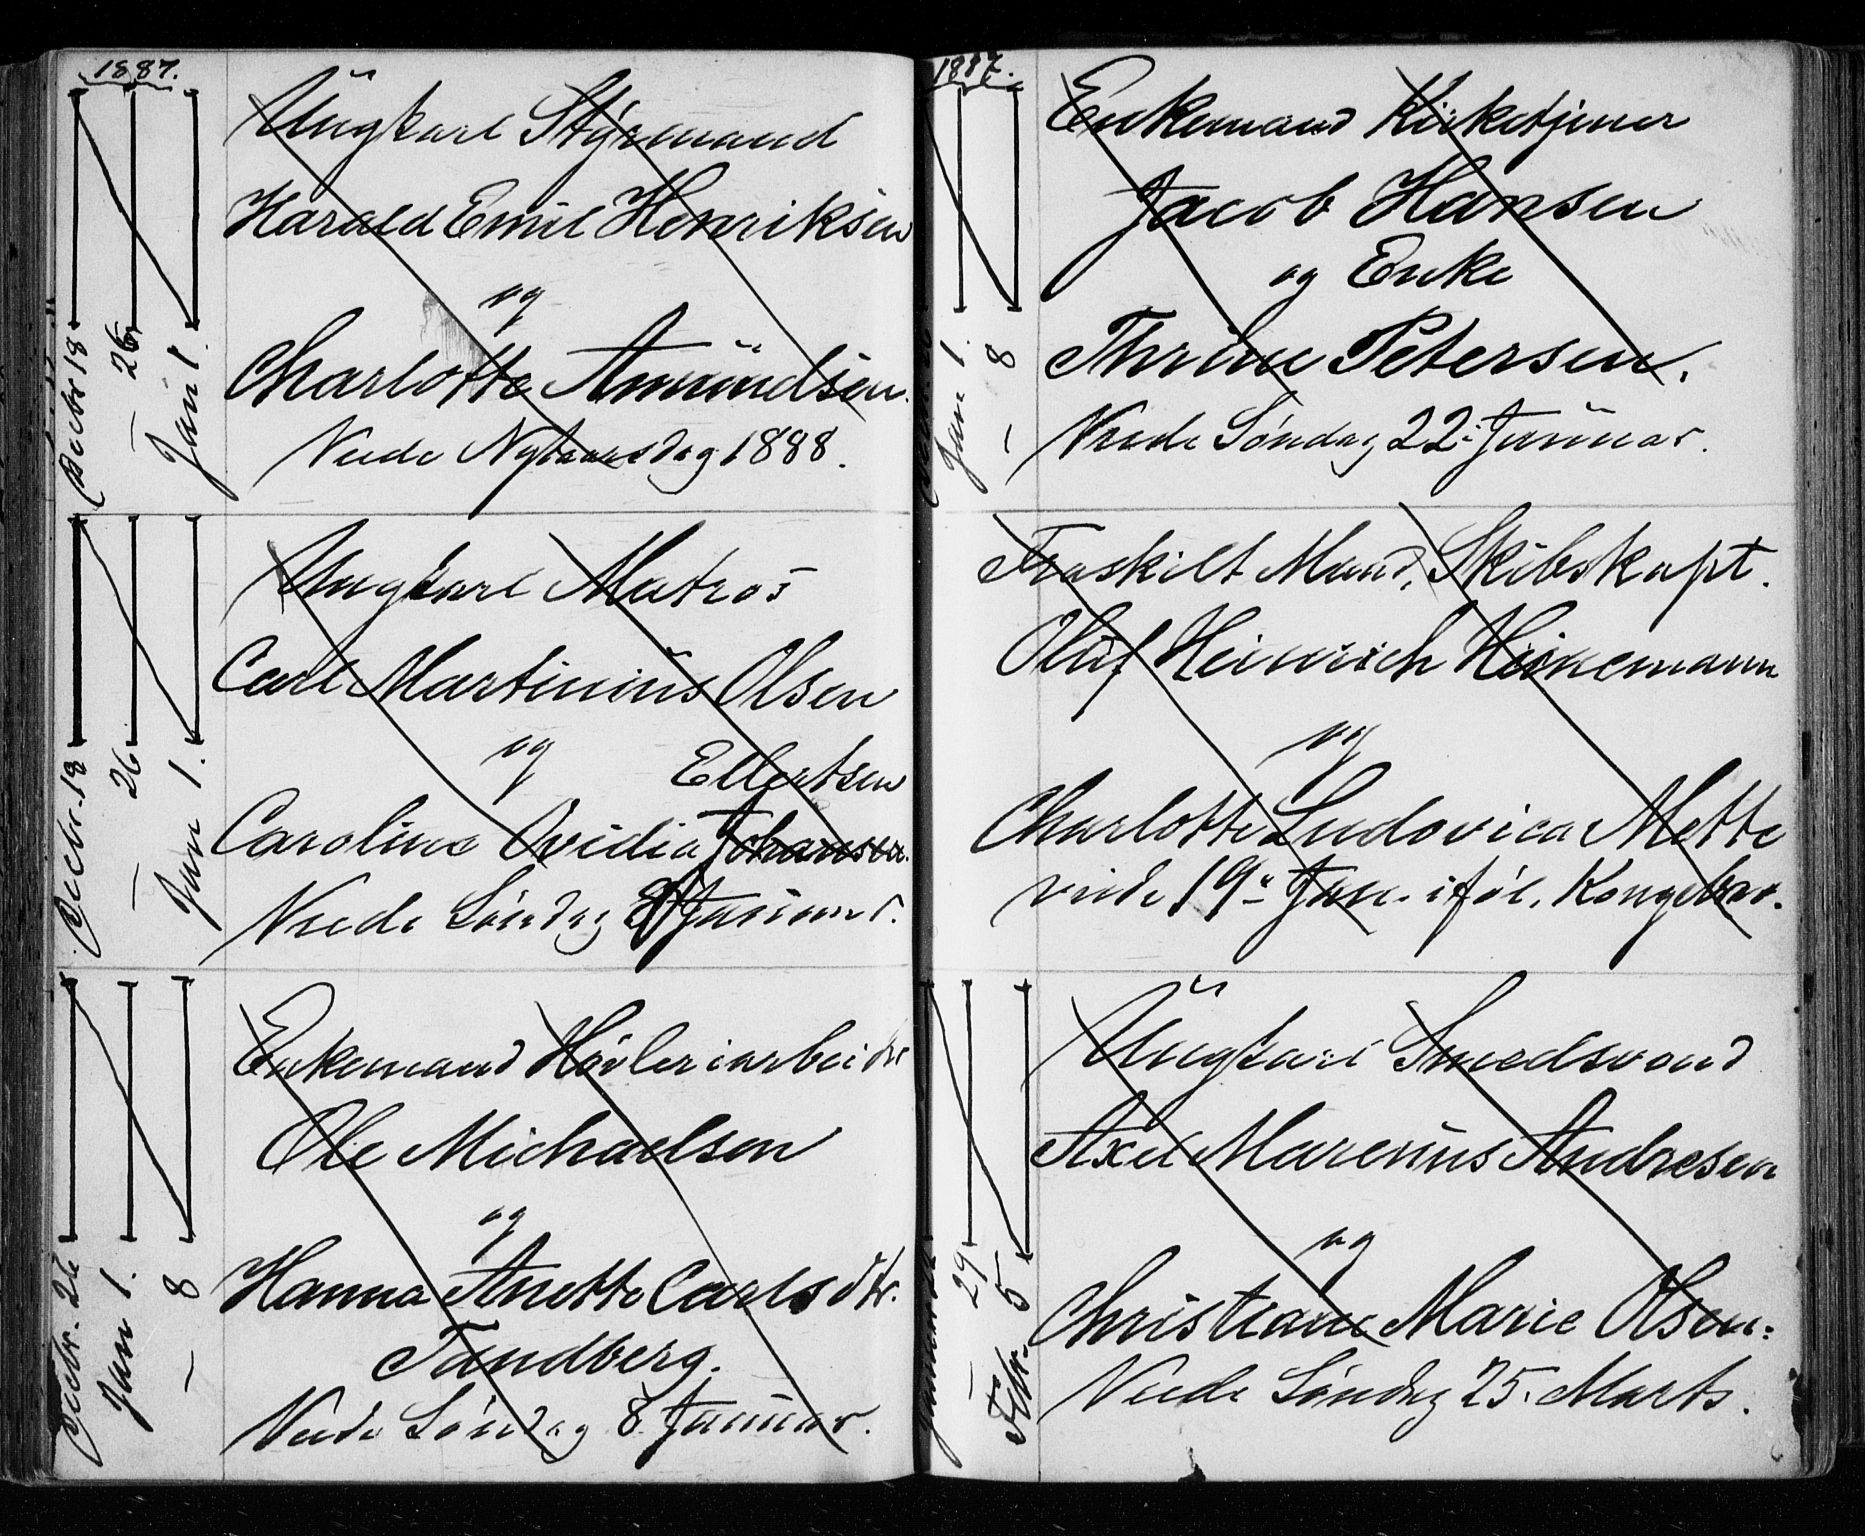 1887.
Decbr 18
— 26
Jan 1.
Ungkarl Styrmand
Harald Emil Henriksen
og
Charlotte Amundsen.
Viede Nytaarsdag 1888.
Decbr. 18
— 26
Jan 1.
Ungkarl Matros
Carl Martinius Olsen
og Ellertsen
Caroline Ovidia Johansen.
Viede Søndag 8 Januar.
Decbr. 26
Jan 1.
— 8
Enkemand Høvleriarbeider
Ole Michaelsen
og
Hanna Anette Carlsdtr.
Tandberg.
Viede Søndag 8. Januar.
1887.
Jan 1.
— 8
Enkemand Kirketjener
Jacob Hansen
og Enke
Thrine Petersen.
Viede Søndag 22: Januar.
Fraskilt Mand, Skibskapt.
Oluf Heinrich Heinemann
og
Charlotte Ludovica Mette
viede 19de Jan. iføl. Kongebrev.
Januar 22
— 29
Febr. 5
Ungkarl Smedsvend
Axel Marenius Andresen
og
Christiane Marie Olsen:
Viede Søndag 25. Marts.